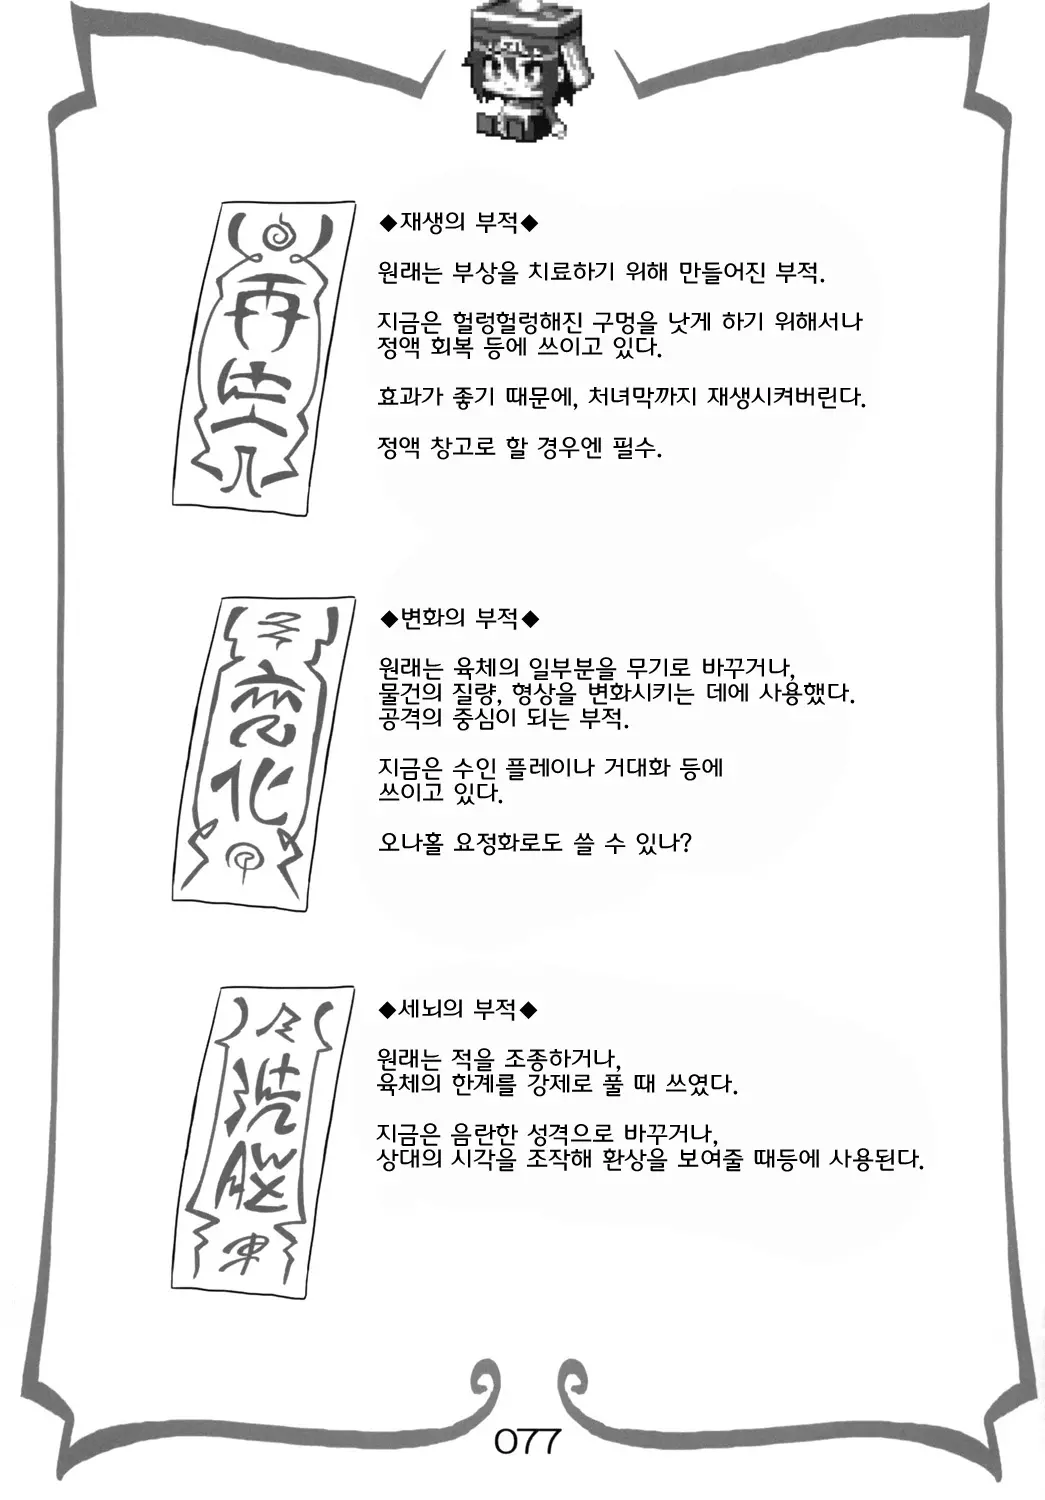 ◆재생의 부적◆
원래는 부상을 치료하기 위해 만들어진 부적.
지금은 헐렁헐렁해진 구멍을 낫게 하기 위해서나
정액 회복 등에 쓰이고 있다.
효과가 좋기 때문에, 처녀막까지 재생시켜버린다.
정액 창고로 할 경우엔 필수.
再
生
◆변화의 부적◆
원래는 육체의 일부분을 무기로 바꾸거나,
물건의 질량, 형상을 변화시키는 데에 사용했다.
공격의 중심이 되는 부적.
지금은 수인 플레이나 거대화 등에
쓰이고 있다.
오나홀 요정화로도 쓸 수 있나?
化
◆세뇌의 부적◆
원래는 적을 조종하거나,
육체의 한계를 강제로 풀 때 쓰였다.
지금은 음란한 성격으로 바꾸거나,
상대의 시각을 조작해 환상을 보여줄 때등에 사용된다.
077